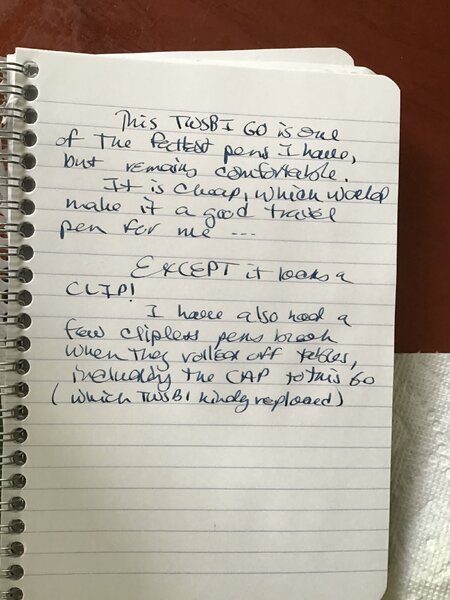 This TWSBI GO is one
of The fattest pens I have,
but remains comfortable.
It is cheap, which would
make it a good travel
pen for me ---
EXCEPT it lacks a
CLIP!
I have also had a
few clipless pens break
when they rolled off tables,
including the CAP to this GO
(which TWSBI kindly replaced)